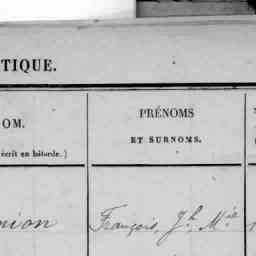 TIQUE.
OM.
écrit en bâtarde.)
PRÉNOMS
ET SURNOMS.
nion
François, J.h M.el